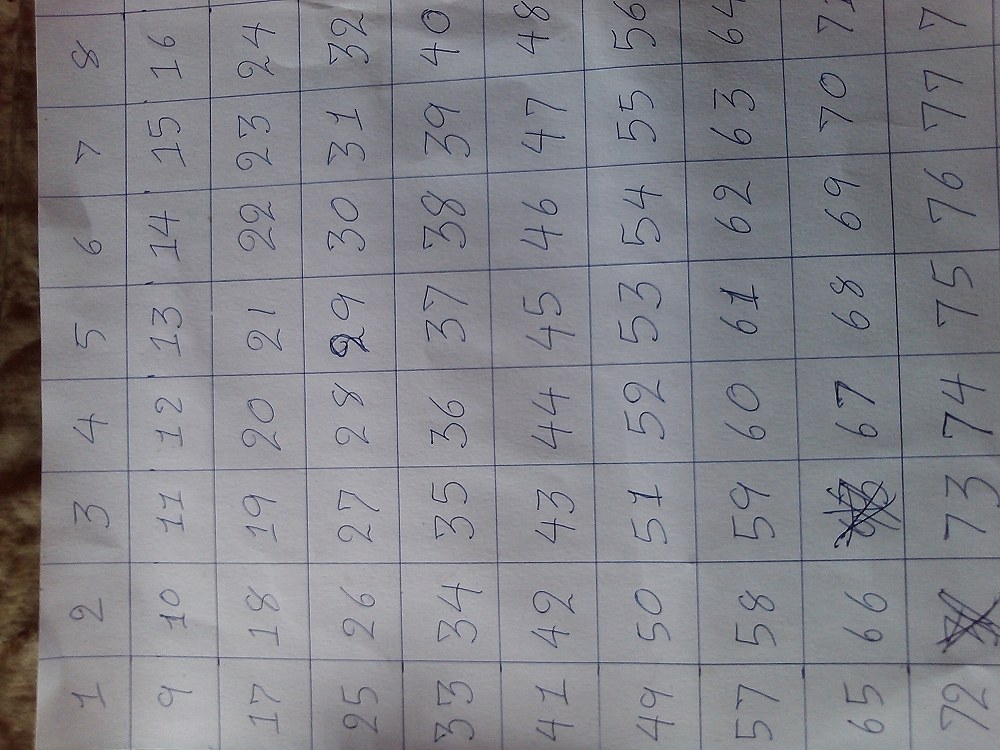 1 2 3 4 5 6 7 8
9 10 11 12 13 14 15 16
17 18 19 20 21 22 23 24
25 26 27 28 29 30 31 32
33 34 35 36 37 38 39 40
41 42 43 44 45 46 47 48
49 50 51 52 53 54 55 56
57 58 59 60 61 62 63 64
65 66 67 68 69 70 71
72 73 74 75 76 77